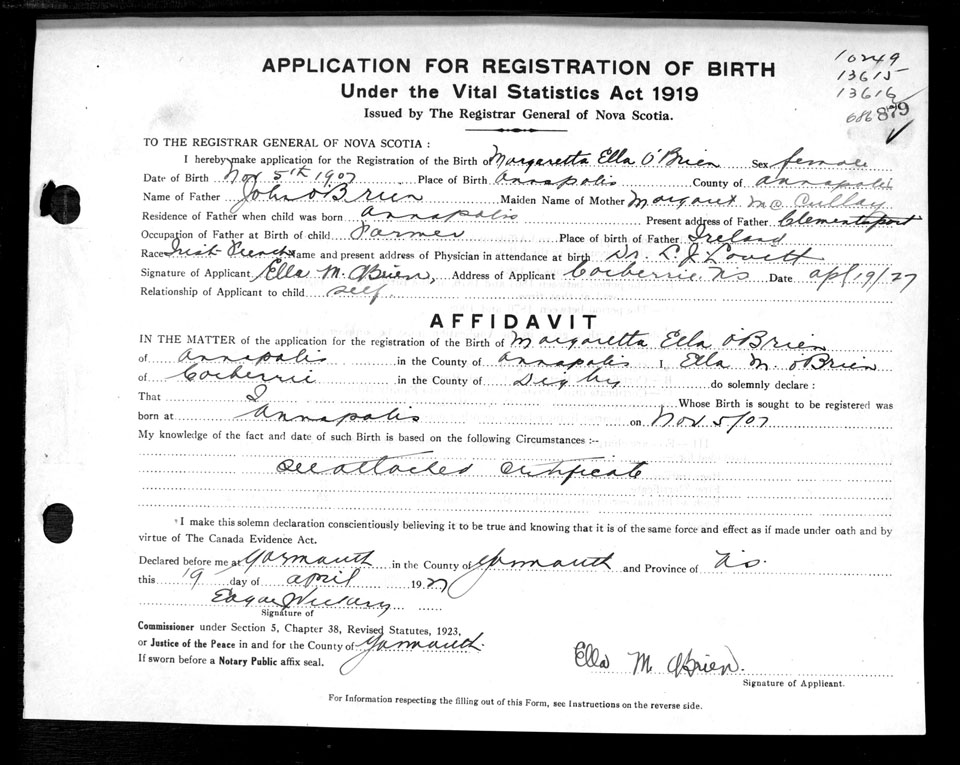 APPLICATION FOR REGISTRATION OF BIRTH
Under the Vital Statistics Act 1919
Issued by The Registrar General of Nova Scotia.
10249
13615
13616
686 879
TO THE REGISTRAR GENERAL OF NOVA SCOTIA :
I hereby make application for the Registration of the Birth of Margaretta Ella O'Brien Sex female
Date of Birth Nov 5th 1907 Place of Birth Annapolis County of Annapolis
Name of Father John O'Brien Maiden Name of Mother Margaret Mc Cullay
Residence of Father when child was born Annapolis Present address of Father Clementsport
Occupation of Father at Birth of child Farmer Place of birth of Father Ireland
Race Irish French Name and present address of Physician in attendance at birth Dr. L J Lovitt
Signature of Applicant Ella M. O'Brien, Address of Applicant Corberrie, N.S. Date Apl 19/27
Relationship of Applicant to child self.
AFFIDAVIT
IN THE MATTER of the application for the registration of the Birth of Margaretta Ella O'Brien
of Annapolis in the County of Annapolis I Ella M. O'Brien
of Corberrie in the County of Digby do solemnly declare :
That I Whose Birth is sought to be registered was
born at Annapolis on Nov. 5/07
My knowledge of the fact and date of such Birth is based on the following Circumstances :--
See attached certificate
I make this solemn declaration conscientiously believing it to be true and knowing that it is of the same force and effect as if made under oath and by
virtue of The Canada Evidence Act.
Declared before me at Yarmouth in the County of Yarmouth and Province of N.S.
this 19 day of April 1927
Edgar
Signature of
Commissioner under Section 5, Chapter 38, Revised Statutes, 1923,
or Justice of the Peace in and for the County of Yarmouth.
If sworn before a Notary Public affix seal.
Ella M. O'Brien.
Signature of Applicant.
For Information respecting the filling out of this Form, see Instructions on the reverse side.